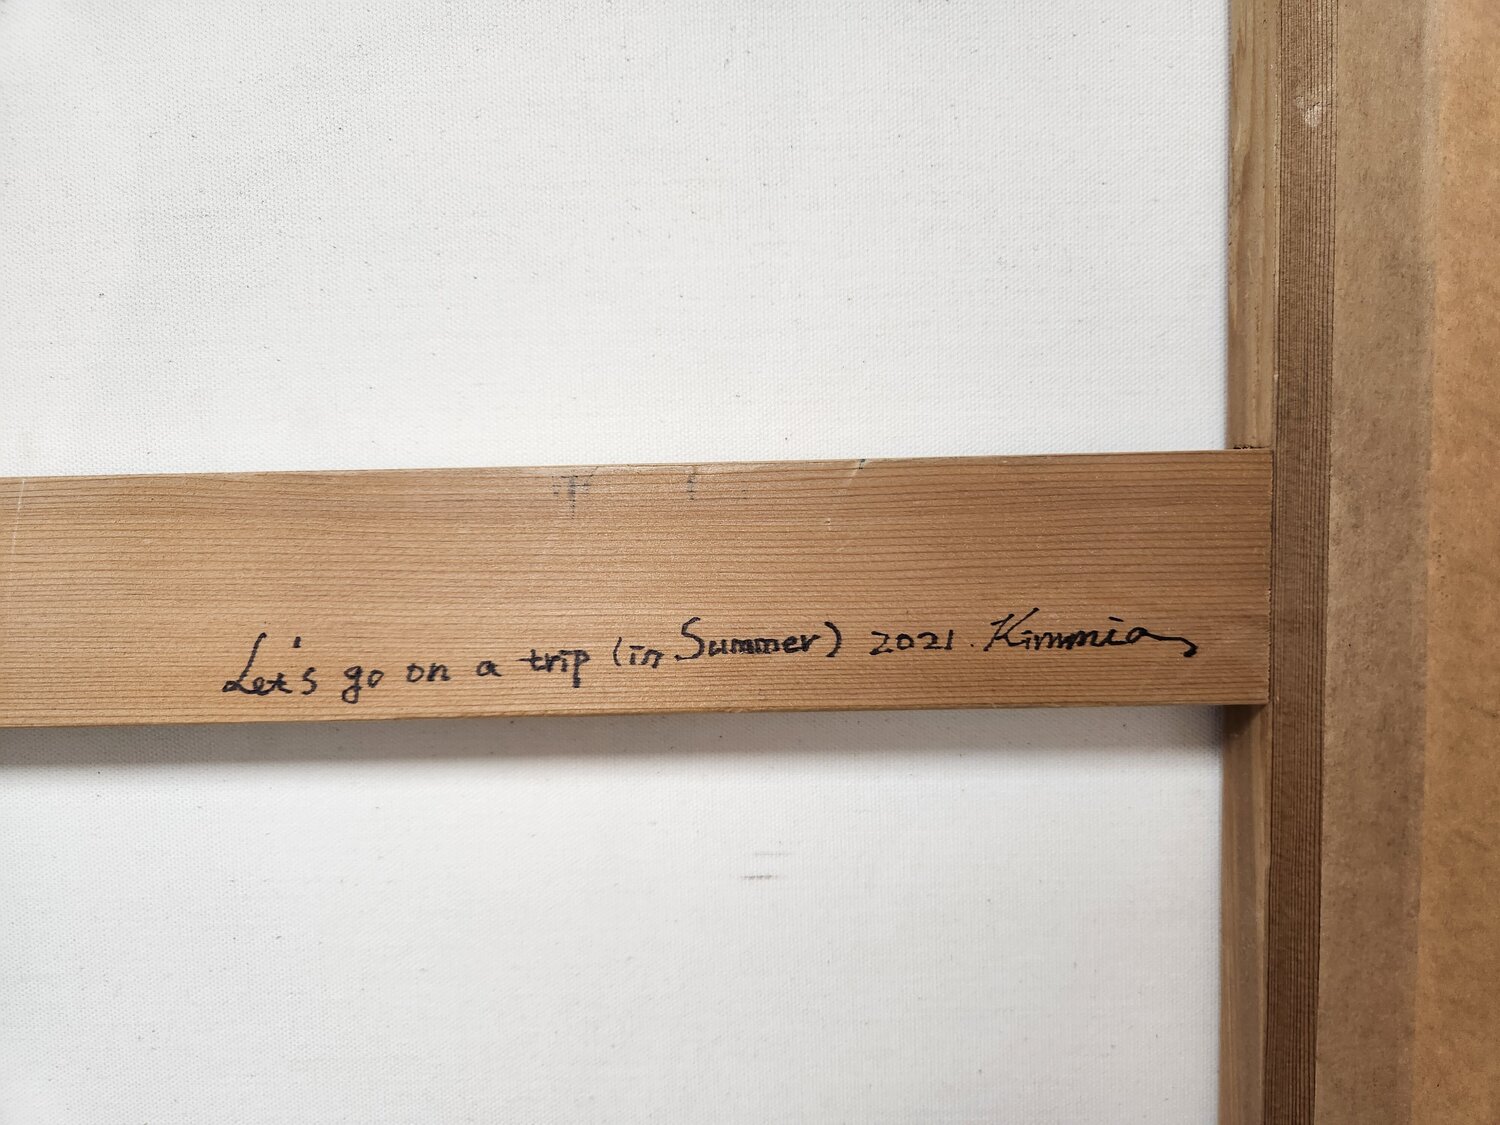 Let's go on a trip (in Summer) 2021. Kimmia